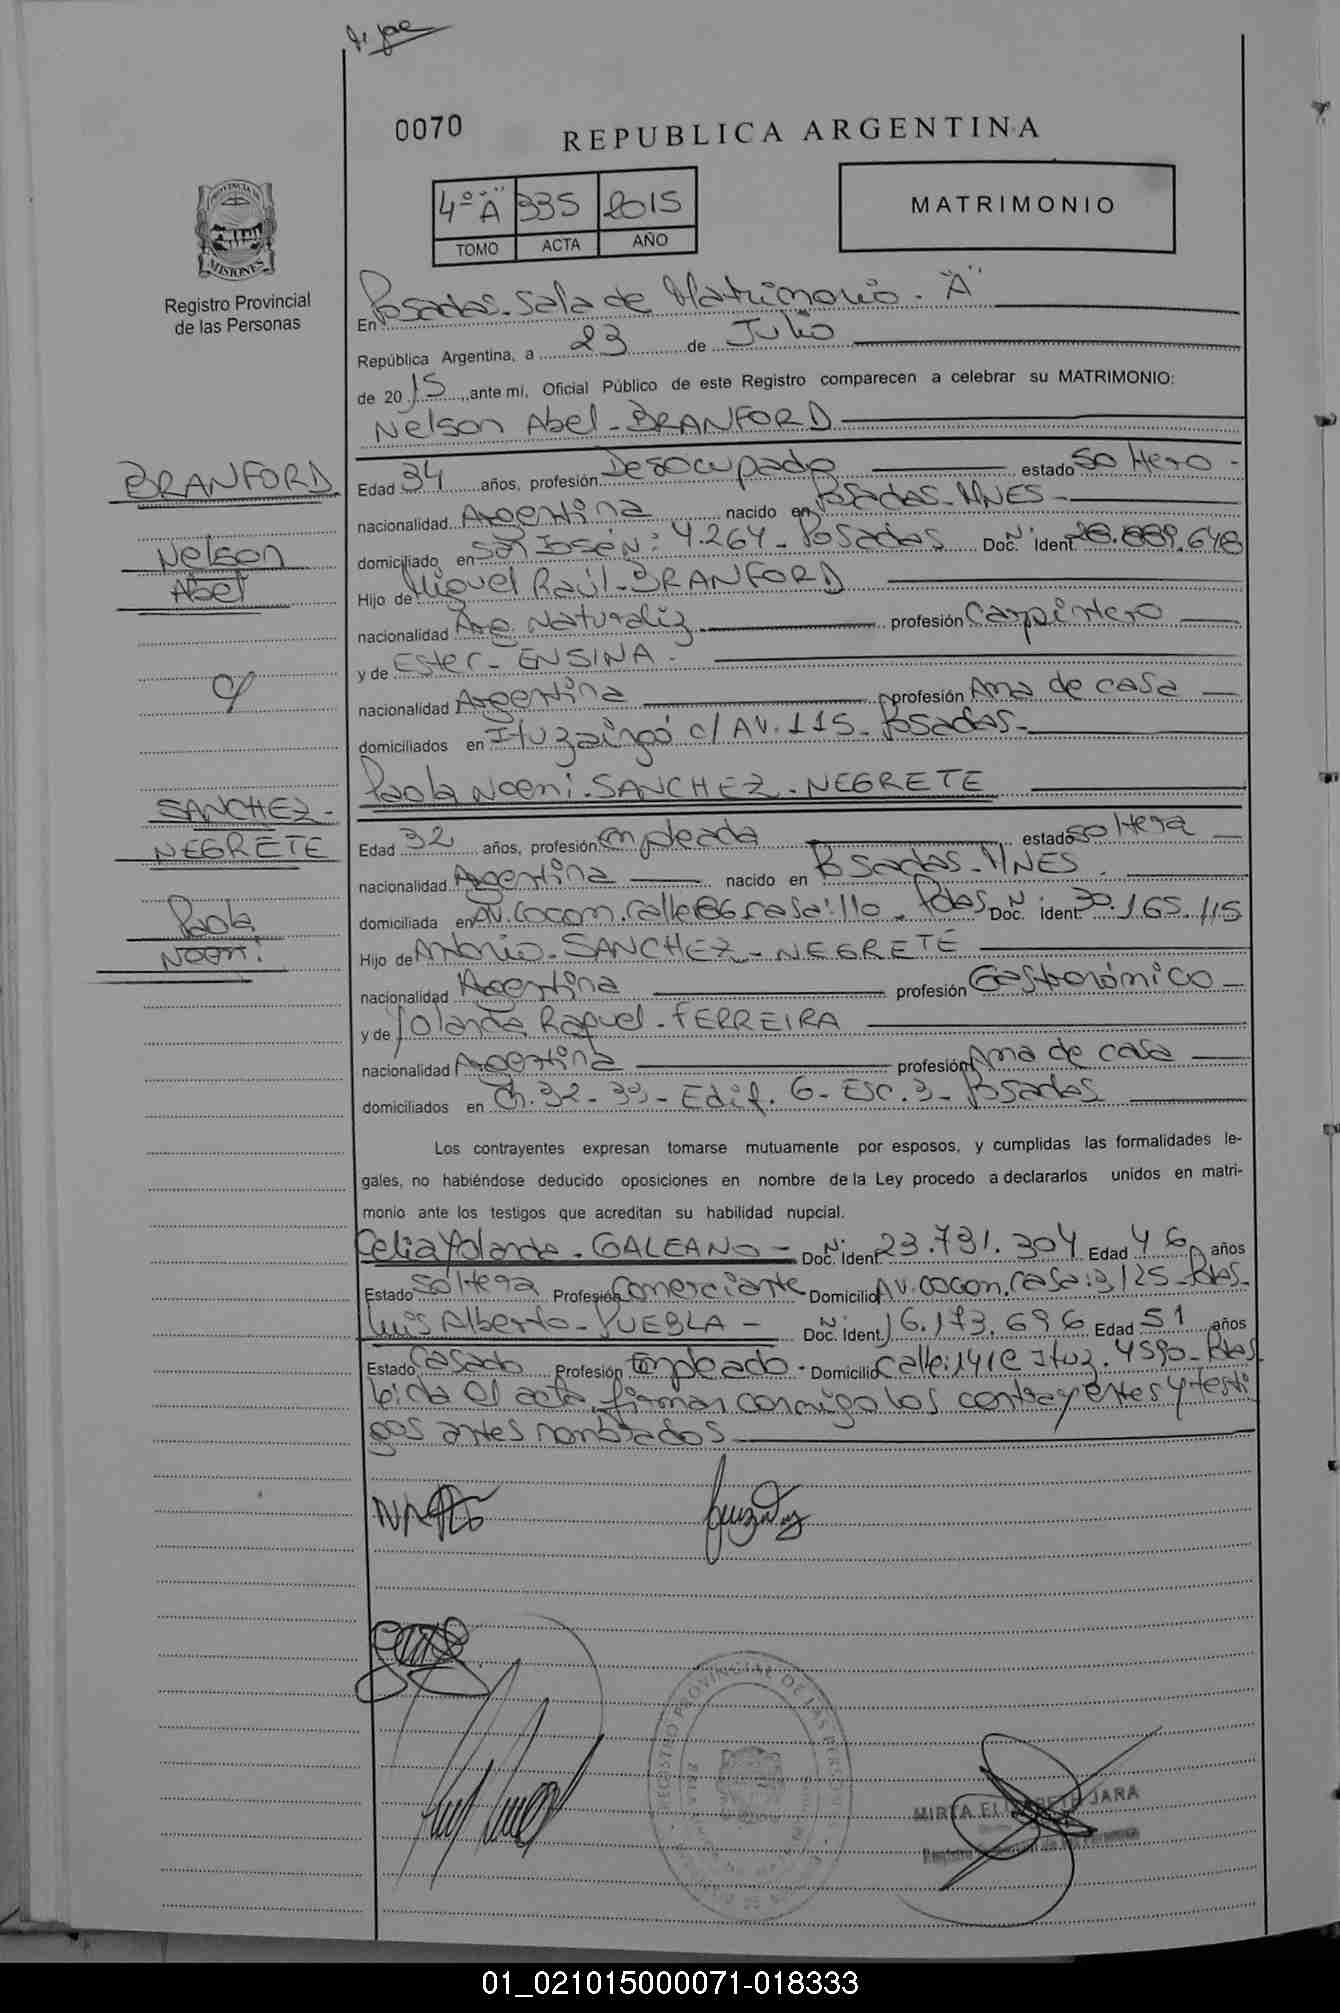 0070
REPUBLICA ARGENTINA
4º "A" 335 2015
TOMO ACTA AÑO
MATRIMONIO
PROVINCIA DE
MISIONES
Registro Provincial
de las Personas
En Posadas. Sala de Matrimonio. "A"
República Argentina, a 23 de Julio
de 2015, ante mi, Oficial Público de este Registro comparecen a celebrar su MATRIMONIO:
Nelson Abel - BRANFORD
BRANFORD
Nelson
Abel
Edad 34 años, profesión Desocupado estado soltero -
nacionalidad Argentina nacido en Posadas - MNES -
domiciliado en San José N: 4.264 - Posadas Doc. Nº Ident. 28.889.648
Hijo de Miguel Raúl - BRANFORD
nacionalidad Arg. Naturaliz profesión Carpintero
y de Ester - ENSINA -
nacionalidad Argentina profesión Ama de casa
domiciliados en Ituzaingó c/ AV. 115 - Posadas -
Paola Noemi - SANCHEZ - NEGRETE
SANCHEZ -
NEGRETE
Paola
Noemi
Edad 32 años, profesión empleada estado soltera
nacionalidad Argentina nacido en Posadas - MNES.
domiciliada en AV. Cocom. calle 86 casa: 110 - Pdas Doc. Nº ident. 30.165.115
Hijo de Antonio - SANCHEZ - NEGRETE
nacionalidad Argentina profesión Gastronómico -
y de Yolanda Raquel - FERREIRA
nacionalidad Argentina profesión Ama de casa
domiciliados en Ch. 32-33 - Edif. 6 - Esc. 3 - Posadas
Los contrayentes expresan tomarse mutuamente por esposos, y cumplidas las formalidades le-
gales, no habiéndose deducido oposiciones en nombre de la Ley procedo a declararlos unidos en matri-
monio ante los testigos que acreditan su habilidad nupcial.
Celia Yolanda - GALEANO - Doc. Nº Ident. 23.731.304 Edad 46 años
Estado soltera Profesión Comerciante Domicilio AV. Cocom. casa: 3125 - Pdas -
Luis Alberto - PUEBLA - Doc. Nº Ident. 16.173.696 Edad 51 años
Estado Casado Profesión Empleado - Domicilio Calle: 141 e Ituz. 4590 - Pdas
leida el acta, firman conmigo los contrayentes y testi
gos antes nombrados
REGISTRO PROVINCIAL DE LAS PERSONAS
MIRTA ELIZABETH JARA
Registro Provincial de las Personas
01_021015000071-018333